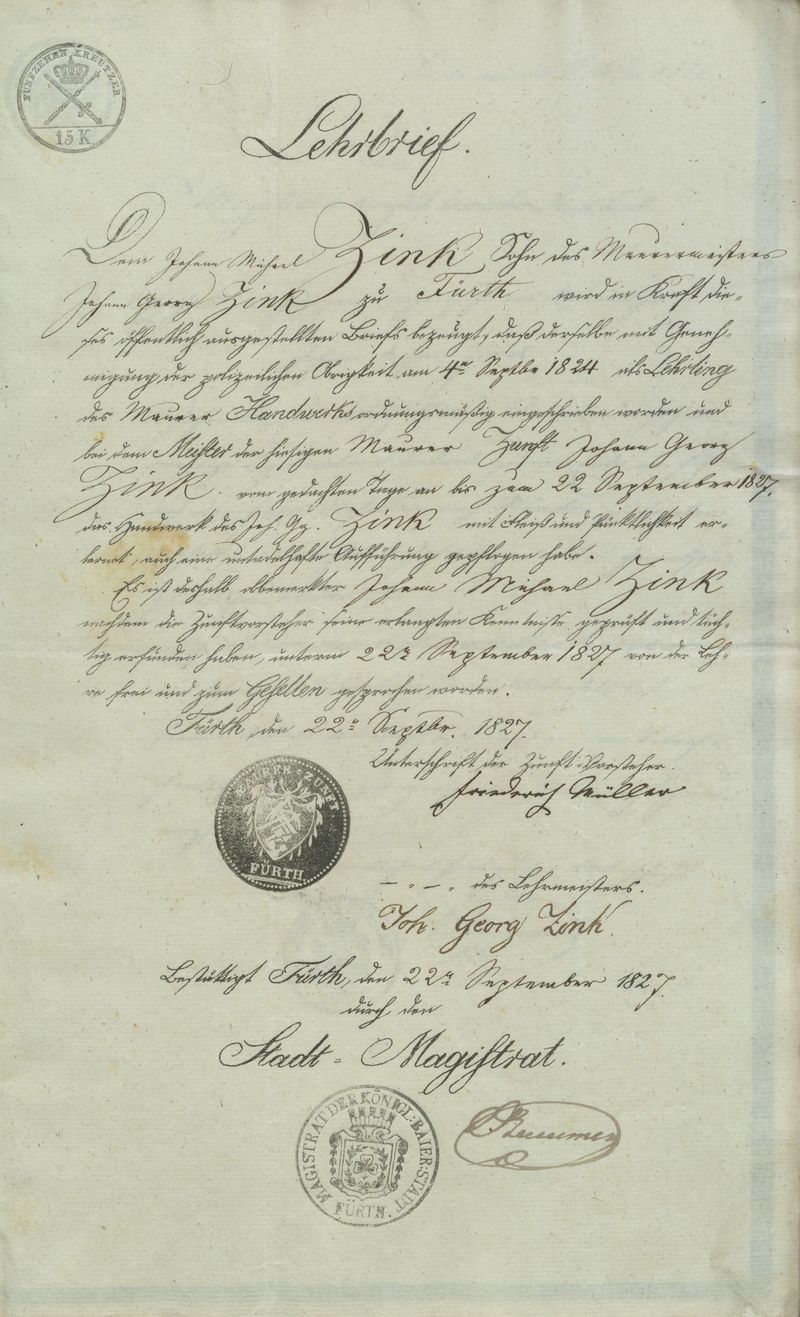 FÜNFZEHEN KREUTZER
15 K
Lehrbrief.
Dem Johann Michael Zink Sohn des Maurermeisters
Johann Georg Zink zu Fürth wird in Kraft die-
ses öffentlich ausgestellten Briefs bezeugt, daß derselbe mit Geneh-
migung der polizeilichen Obrigkeit am 4ten Septbr 1824 als Lehrling
des Maurer Handwerks ordnungsmäßig eingeschrieben worden und
bei dem Meister der hiesigen Maurer Zunft Johann Georg
Zink. vom gedachten Tage an bis zum 22 September 1827.
das Handwerk des Joh. Gg. Zink mit Fleiß und Pünktlichkeit er-
lernet, auch eine untadelhafte Aufführung gepflogen habe.
Es ist deshalb obbemerkter Johann Michael Zink
nachdem die Zunftvorsteher seine erlangten Kenntniße geprüft und tüch-
tig erfunden haben, unterm 22n September 1827 von der Leh-
re frei und zum Gesellen gesprochen worden.
Fürth, den 22n Septbr. 1827.
Unterschrift der Zunft-Vorsteher.
Friederich Müller
MAURER ZUNFT
FÜRTH
— " — " des Lehrmeisters.
Joh. Georg Zink.
Bestättigt Fürth, den 22n September 1827.
durch den
Stadt-Magistrat.
MAGISTRAT DER KÖNIGL: BAIER: STADT
FÜRTH.